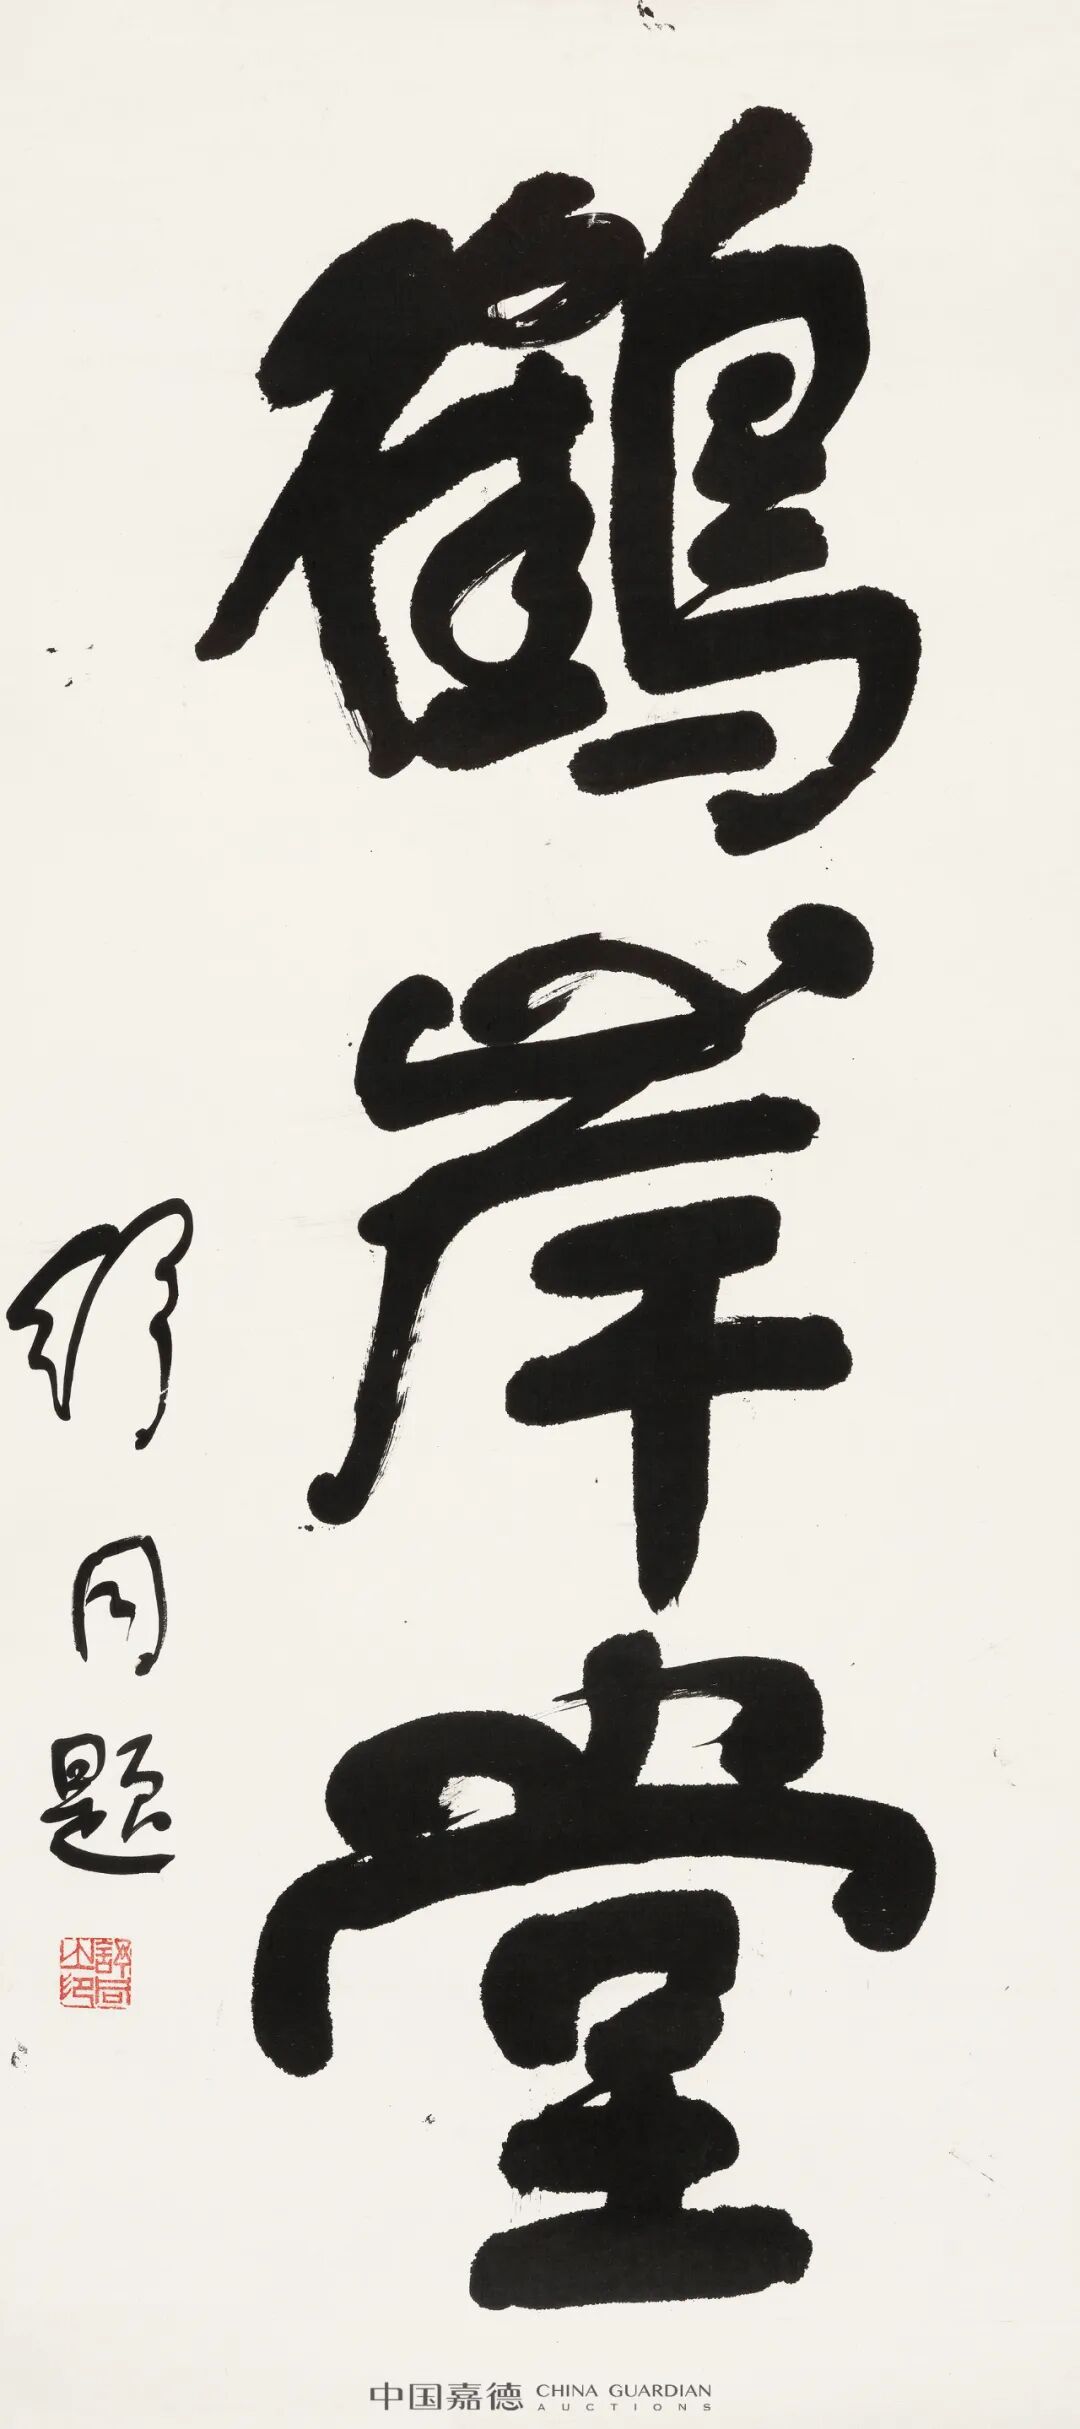 鶴岸堂
舒同題
舒同之印
中国嘉德 CHINA GUARDIAN AUCTIONS